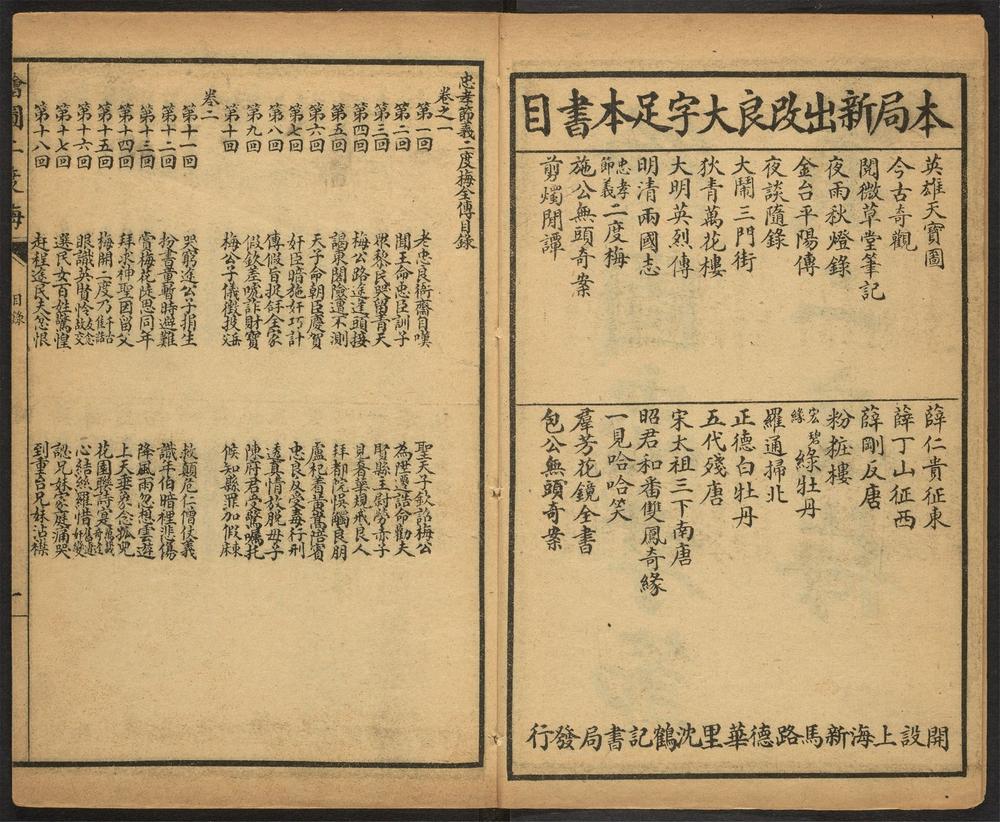 本局新出改良大字足本書目
英雄天寶圖
今古奇觀
閱微草堂筆記
夜雨秋燈錄
金台平陽傳
夜談隨錄
大鬧三門街
狄青萬花樓
大明英烈傳
明清兩國志
忠孝節義二度梅
施公無頭奇案
剪燭閒譚
薛仁貴征東
薛丁山征西
薛剛反唐
粉粧樓
宏碧緣綠牡丹
羅通掃北
正德白牡丹
五代殘唐
宋太祖三下南唐
昭君和番雙鳳奇緣
一見哈哈笑
羣芳花鏡全書
包公無頭奇案
開設上海新馬路德華里沈鶴記書局發行
忠孝節義二度梅全傳目錄
卷之一
第一回 老忠良衙齋自嘆 聖天子欽詔梅公
第二回 聞王命忠臣訓子 為陞遷誥命勸夫
第三回 眾黎民哭留青天 賢縣主尉勞赤子
第四回 梅公路途逢頭接 見喜單規戒良人
第五回 謁東閣險遭不測 拜都院悞觸良朋
第六回 天子命朝臣慶賀 盧杞著黃嵩培賓
第七回 奸臣暗施奸巧計 忠良反受毒行刑
第八回 傳假旨捉奸全家 透真情放脫母子
第九回 假欽差唬詐財寶 陳府君受驚囑托
第十回 梅公子儀徵投 候知縣罪加假
卷二
第十一回 哭窮途公子捐生 救顛危仁僧伏義
第十二回 扮書童暫時避難 識年伯暗裡悲傷
第十三回 賞梅花陡思同年 降風雨忽想雲遊
第十四回 拜求神聖因留父 上天垂象念孤兒
第十五回 梅開二度乃千古佳話 花園聯詩定
第十六回 眼識英賢怜故友念故交 心結絲羅惜
第十七回 選民女百姓驚惶 認兄妹家庭痛哭
第十八回 赶程途民夫怨恨 到重台兄妹沾襟
繪圖二度梅
目錄
一